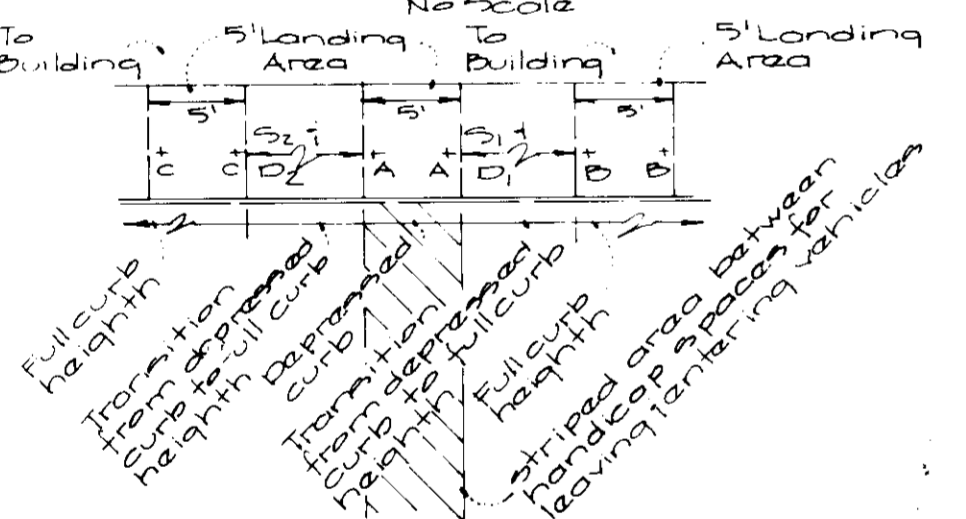 No Scale
To
Building
5' Landing
Area
To
Building
5' Landing
Area
5'
5'
5'
S2
S1
+
C
+
C
D2
+
A
+
A
D1
+
B
+
B
Full curb
heighth
Transition
from depressed
curb to full curb
heighth
Depressed
curb
Transition
from depressed
curb to full curb
heighth
Full curb
heighth
Striped area between
handicap spaces for
leaving/entering vehicles